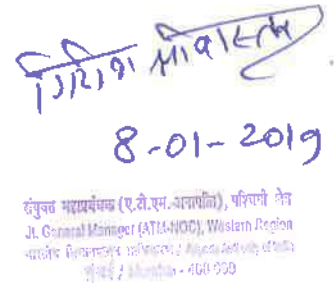 गिरीश श्रीवास्तव
8-01-2019
संयुक्त महाप्रबंधक (ए.टी.एम.-अनापत्ति), पश्चिमी क्षेत्र
Jt. General Manager (ATM-NOC), Western Region
भारतीय विमानपत्तन प्राधिकरण / Airports Authority of India
मुंबई / Mumbai - 400 099